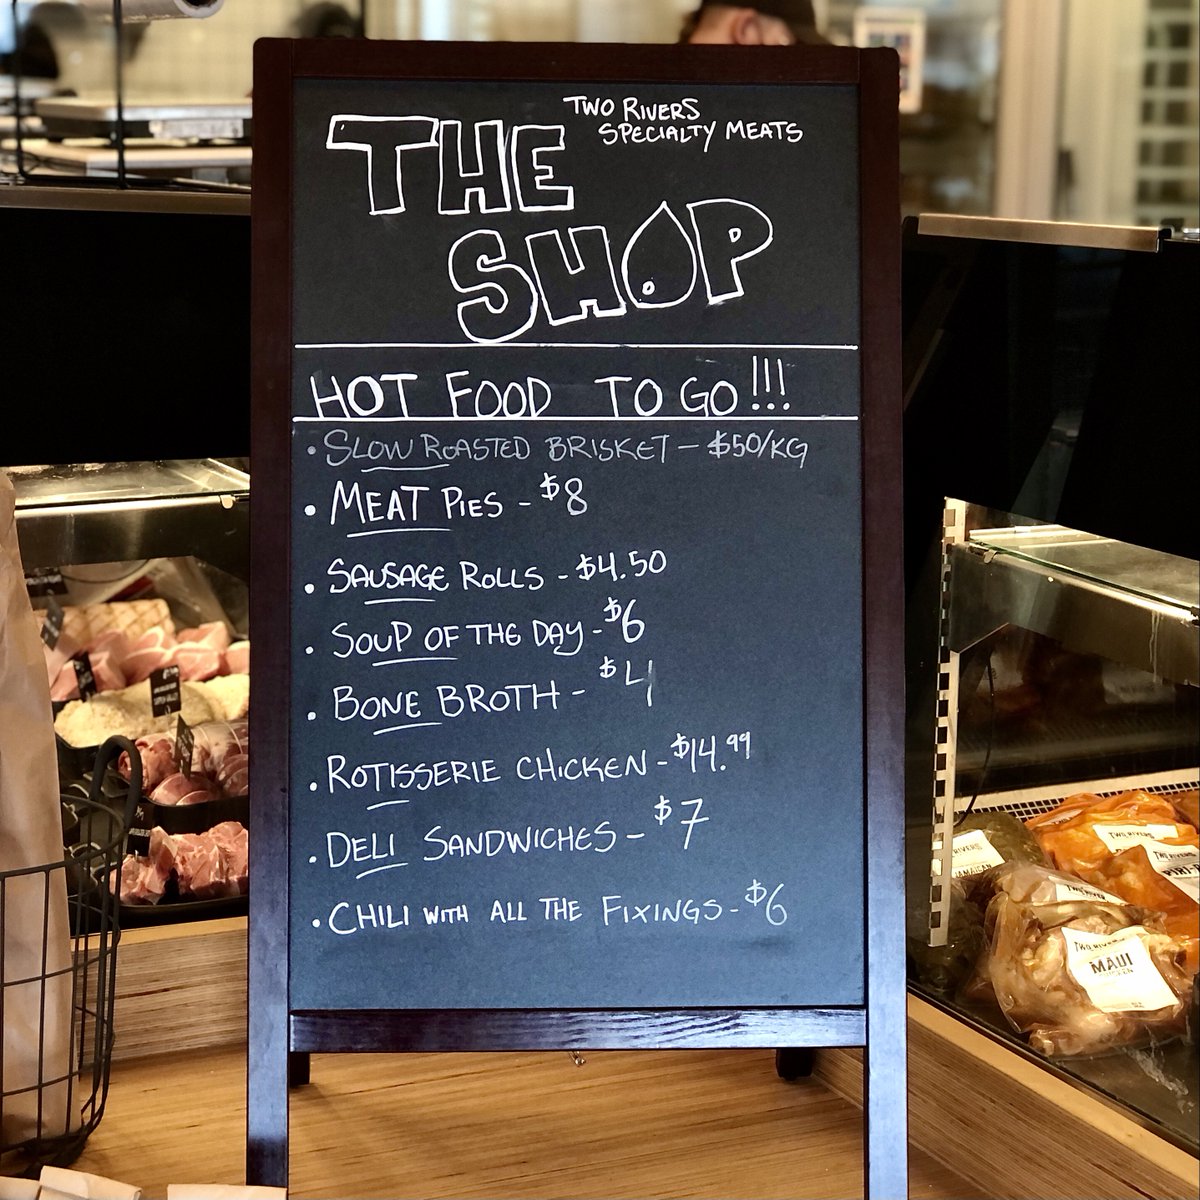 TWO RIVERS
SPECIALTY MEATS
THE
SHOP
HOT FOOD TO GO!!!
• SLOW ROASTED BRISKET - $50/KG
• MEAT PIES - $8
• SAUSAGE ROLLS - $4.50
• SOUP OF THE DAY - $6
• BONE BROTH - $4
• ROTISSERIE CHICKEN - $14.99
• DELI SANDWICHES - $7
• CHILI WITH ALL THE FIXINGS - $6
RIVERS
JAMAICAN
TWO RIVERS
TWO RIVERS
PIRI-
TWO RIVER
TWO RIVERS
MAUI
CHICKEN